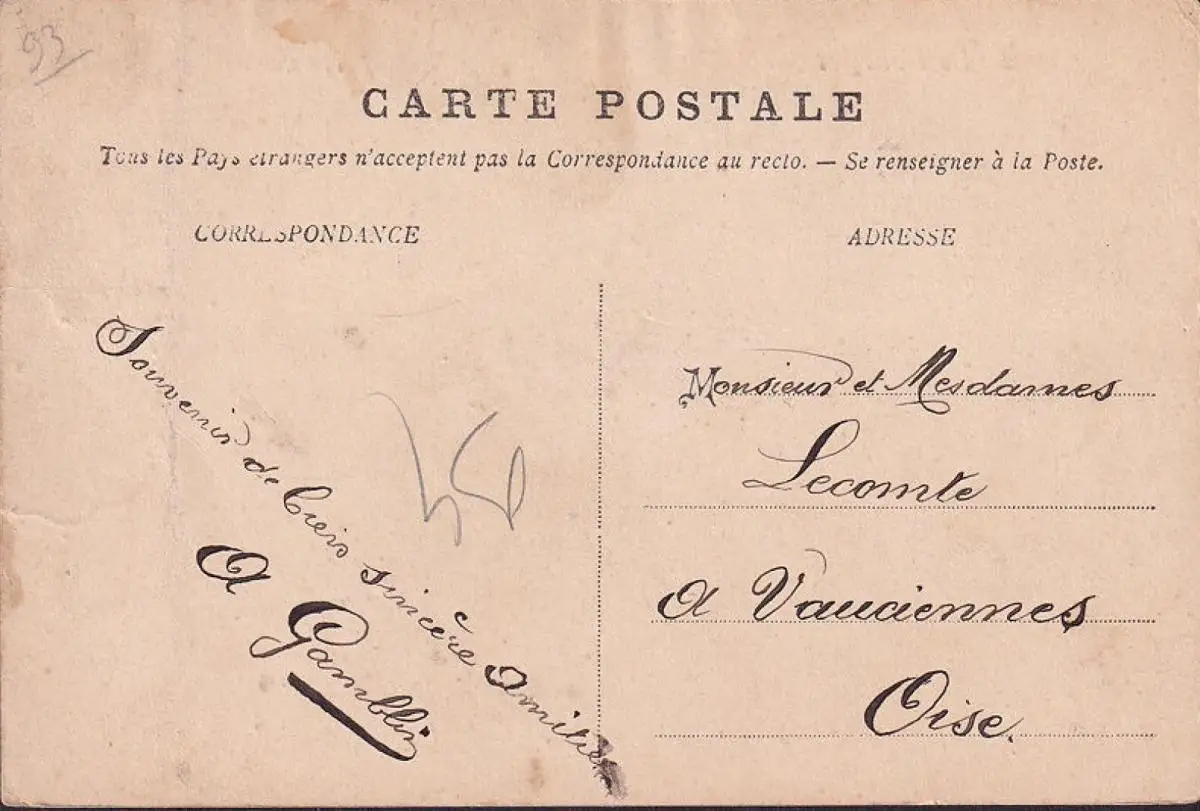 93
CARTE POSTALE
Tous les Pays étrangers n'acceptent pas la Correspondance au recto. — Se renseigner à la Poste.
CORRESPONDANCE
ADRESSE
Souvenir de Creis sincère Amitié
A Gamblin
Monsieur et Mesdames
Lecomte
A Vauciennes
Oise.